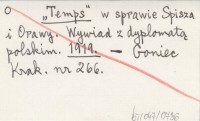 "Temps" w sprawie Spisza
i Orawy. Wywiad z dyplomatą
polskim. 1919. – Goniec
Krak. nr 266.